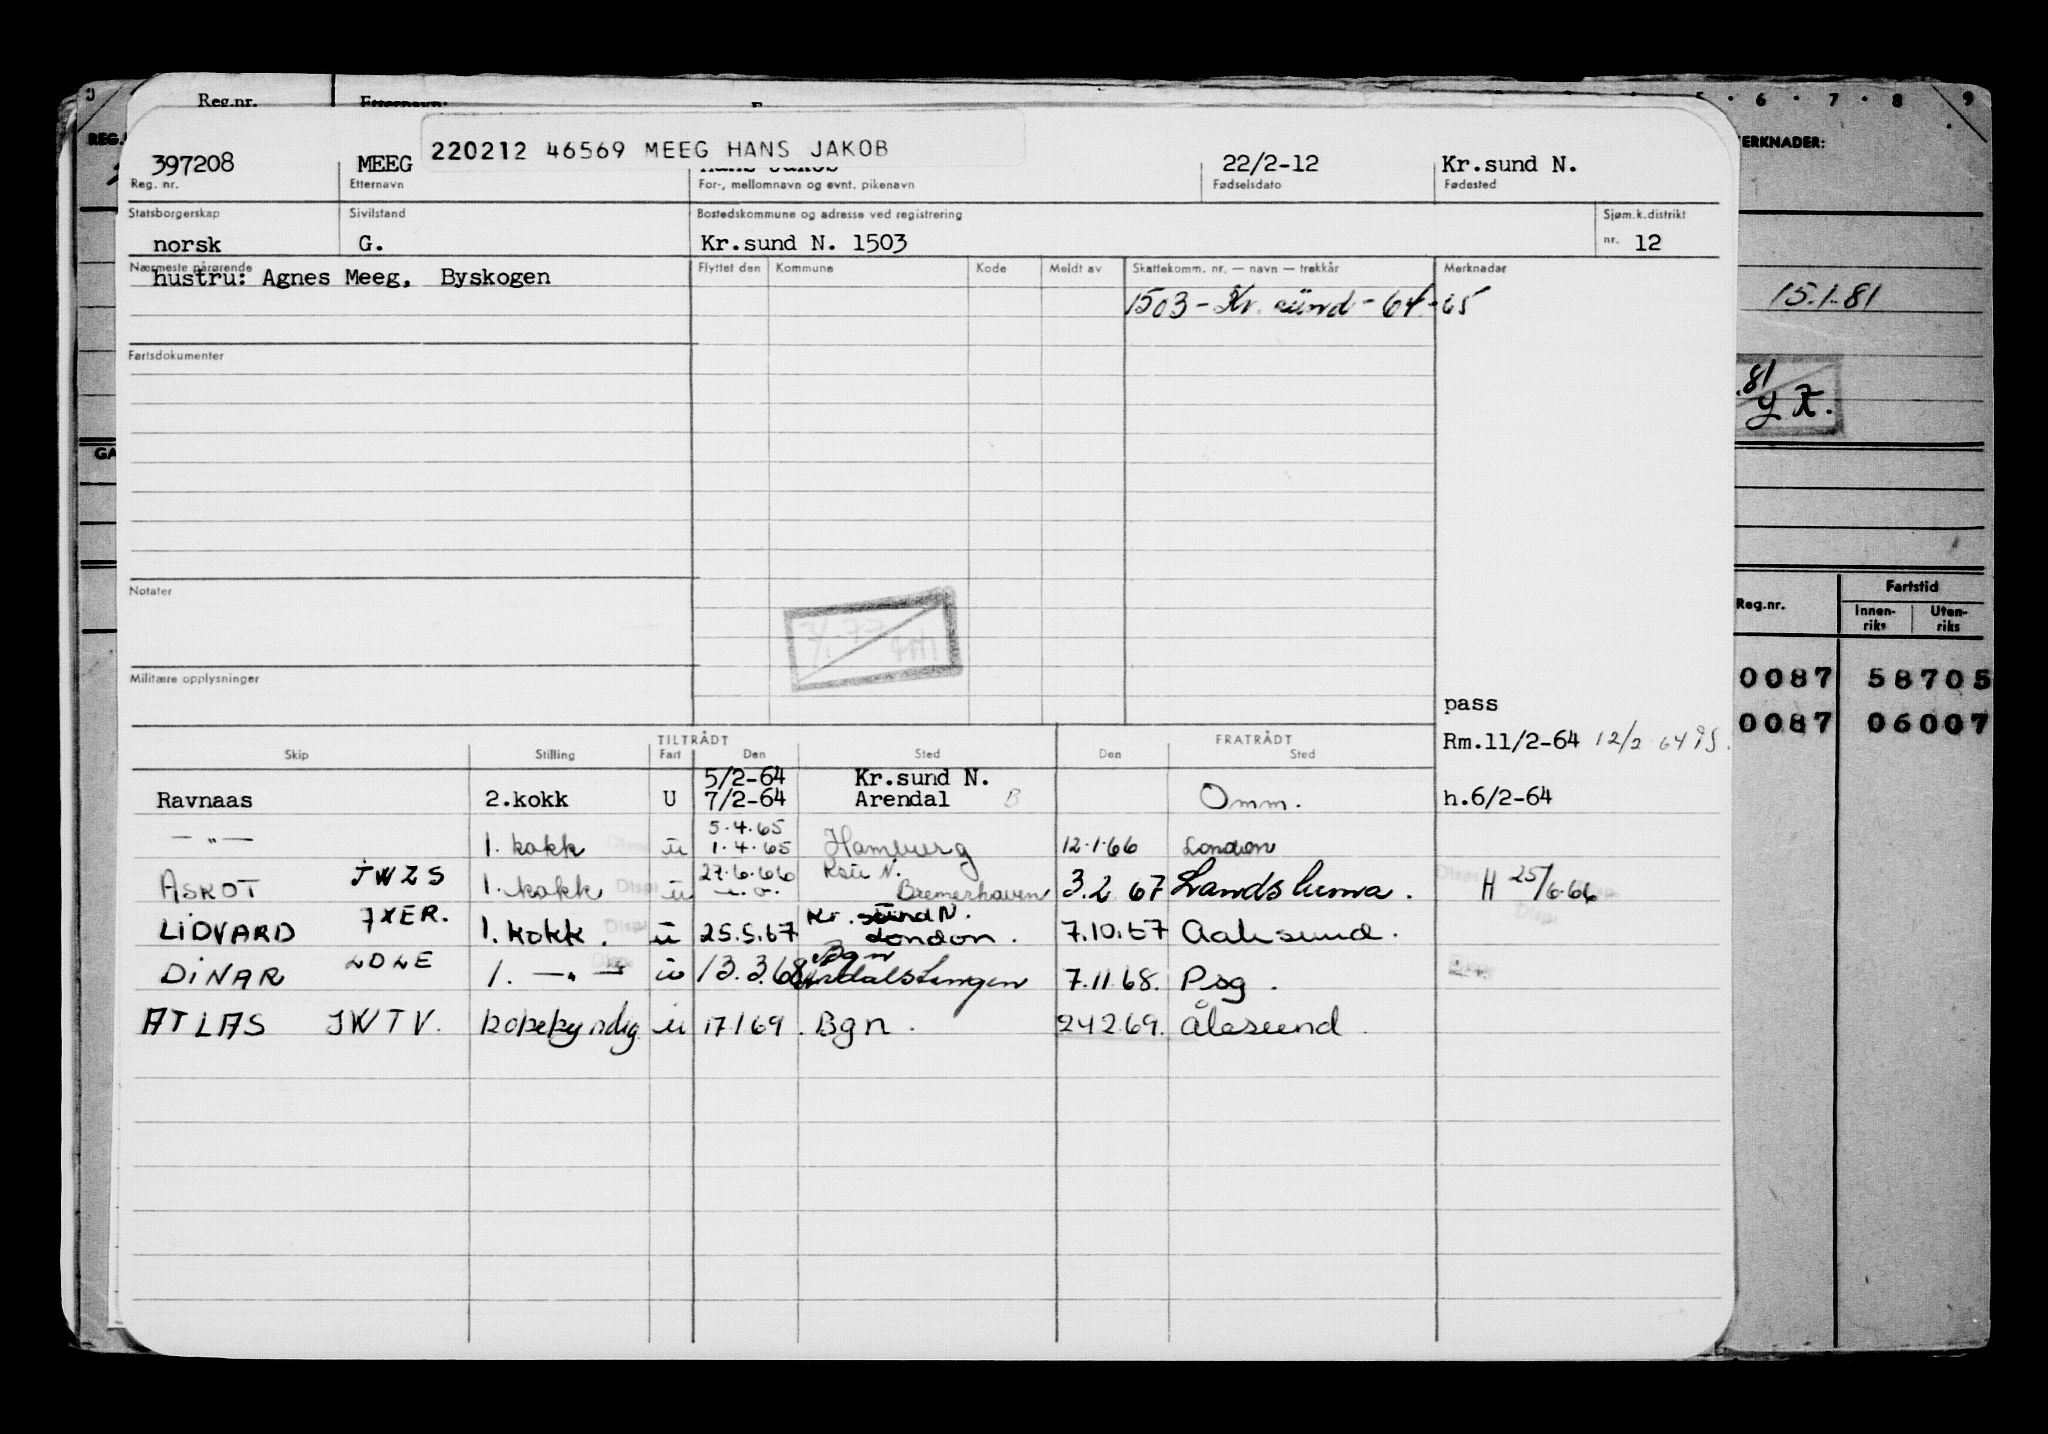 Reg.nr. Etternavn:
5 · 6 · 7 · 8 9
REG.
220212 46569 MEEG HANS JAKOB
397208 MEEG Hans Jakob 22/2-12 Kr.sund N.
Reg. nr. Etternavn For-, mellomnavn og evnt. pikenavn Fødselsdato Fødested
Statsborgerskap Sivilstand Bostedskommune og adresse ved registrering Sjøm.k.distrikt
norsk G. Kr.sund N. 1503 nr. 12
Nærmeste pårørende Flyttet den Kommune Kode Meldt av Skattekomm. nr. — navn — trekkår Merknader
hustru: Agnes Meeg, Byskogen
1503 - Kr. sund - 64-65
Fartsdokumenter
Notater
Militære opplysninger
pass
TILTRÅDT FRATRÅDT
Rm.11/2-64 12/2-64
Skip Stilling Fart Den Sted Den Sted
5/2-64 Kr.sund N.
Ravnaas 2.kokk U 7/2-64 Arendal B Omm. h.6/2-64
5.4.65
— " — 1. kokk u 1.4.65 Hamburg 12.1.66 London
27.6.66 Ksu N.
ASKOT JWZS 1. kokk u Bremerhaven 3.2 67 Landskrona. H 25/6.66
Kr. sund N.
LIDVARD JXER. 1. kokk. u 25.5.67 London. 7.10.67 Aalesund.
Bgn
DINAR LDLE 1. — " — u 13.3.68 Årdalstangen 7.11.68. Psg.
ATLAS JWTV. kokekyndig u 17.1.69. Bgn. 24.2.69. Ålesund.
MERKNADER:
15.1.81
.81
Reg.nr. Fartstid
Innen-riks Uten-riks
0087 58705
0087 06007